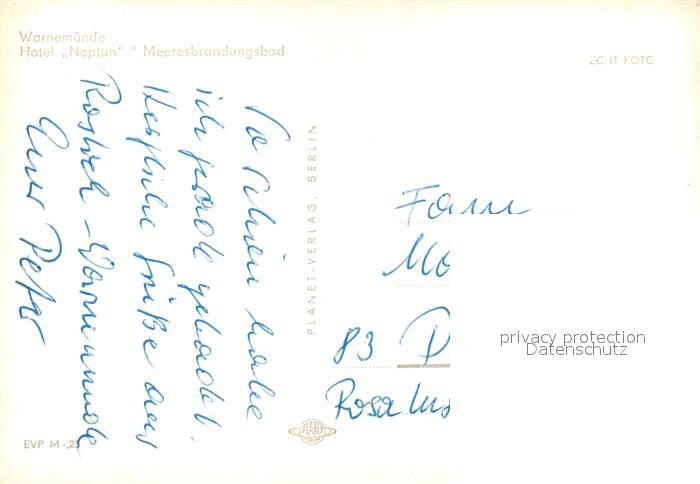 Warnemünde
Hotel „Neptun" ° Meeresbrandungsbad
ECHT FOTO
habe
ich gerade gebadet.
Herzliche Grüße aus
Rostock - Warnemünde
Euer Peter
PLANET-VERLAG, BERLIN
Fam
Mo
83 P
Rosa Lux
privacy protection
Datenschutz
PLANET
EVP M -,25